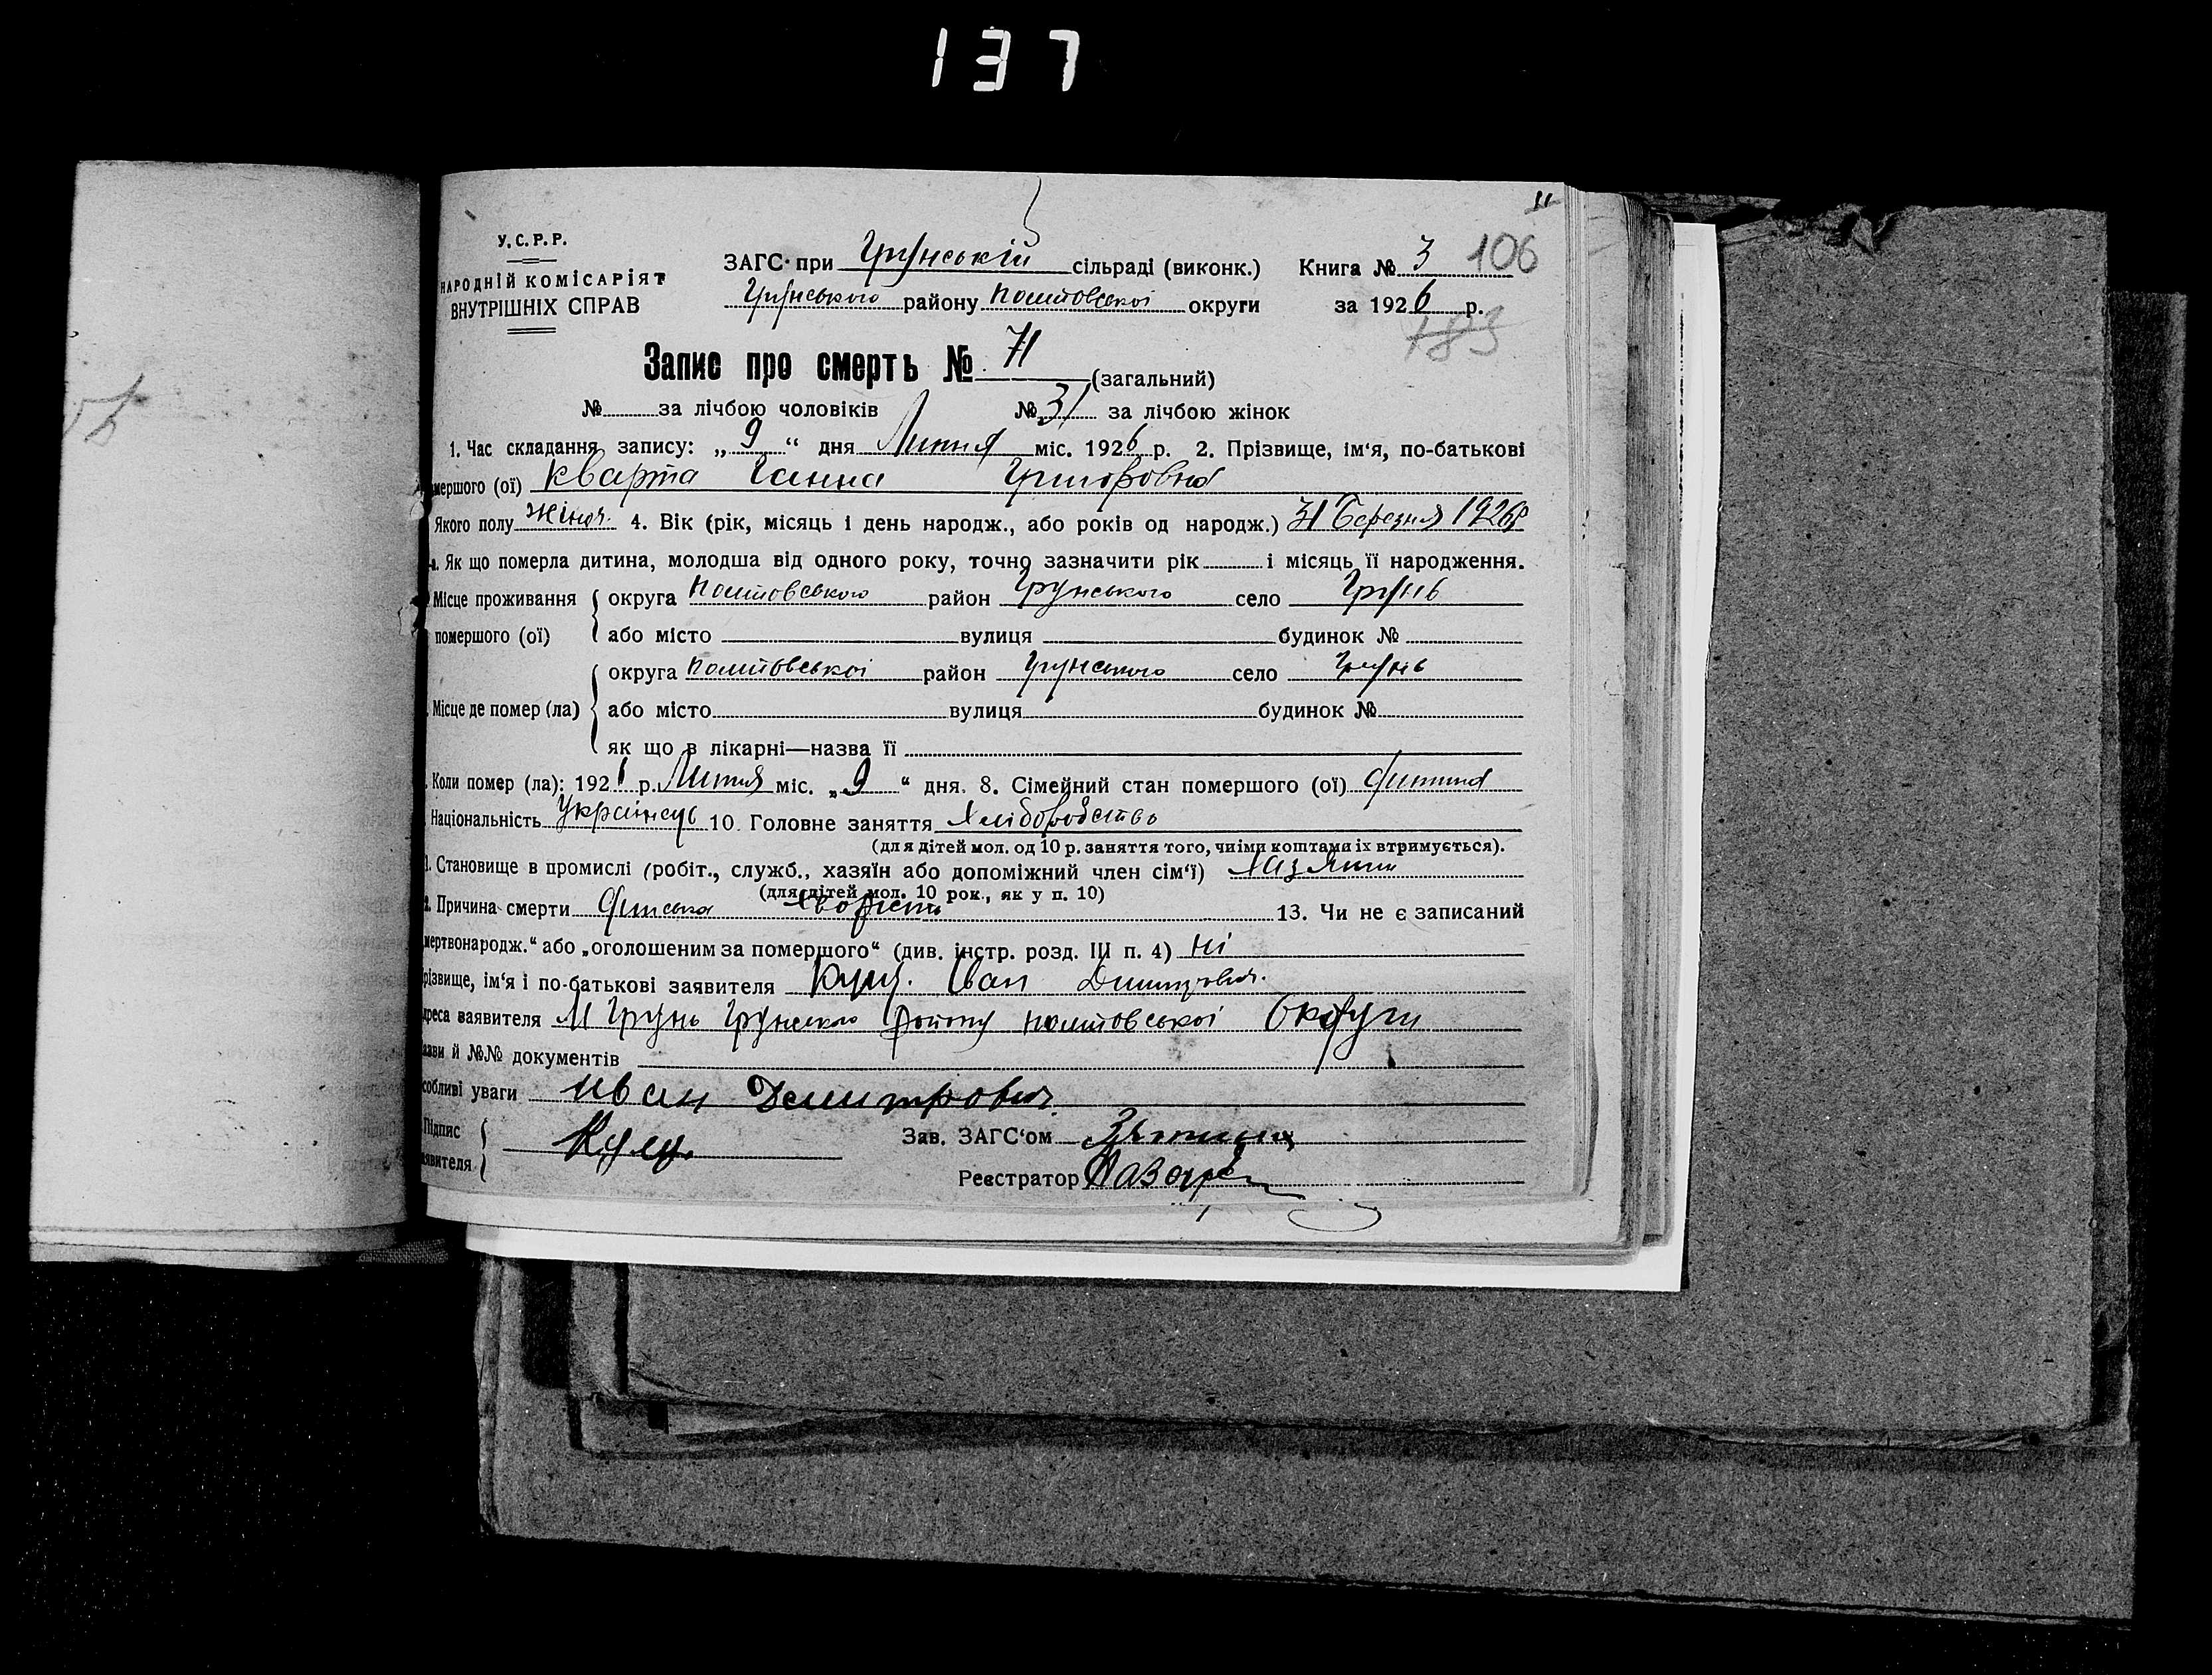 137
11
У.С.Р.Р.
НАРОДНІЙ КОМІСАРІЯТ
ВНУТРІШНІХ СПРАВ
ЗАГС при Грунській сільраді (виконк.) Книга № 3 106
Грунського району Полтовської округи за 1926 р.
183
Запис про смерть № 71 (загальний)
№ за лічбою чоловіків № 31 за лічбою жінок
1. Час складання запису: „9“ дня Липня міс. 1926 р. 2. Прізвище, ім‘я, по-батькові
мершого (ої) Кварта Ганна Григоровна
Якого полу жіноч. 4. Вік (рік, місяць і день народж., або років од народж.) 31 Березня 1926 р
а. Як що померла дитина, молодша від одного року, точно зазначити рік і місяць її народження.
Місце проживання округа Полтовського район Грунського село Грунь
помершого (ої) або місто вулиця будинок №
округа Полтовської район Грунського село Грунь
Місце де помер (ла) або місто вулиця будинок №
як що в лікарні—назва її
Коли помер (ла): 1926 р. Липня міс. „9“ дня. 8. Сімейний стан помершого (ої) дитина
Національність Українець 10. Головне заняття Хліборобство
(для дітей мол. од 10 р. заняття того, чиїми коштами їх втримується).
1. Становище в промислі (робіт., служб., хазяїн або допоміжний член сім‘ї) Хазяин
(для дітей мол. 10 рок., як у п. 10)
2. Причина смерти Дитська хворість 13. Чи не є записаний
мертвонародж.“ або „оголошеним за помершого“ (див. інстр. розд. III п. 4) Ні
різвище, ім‘я і по-батькові заявителя Іван Димитрович
дреса заявителя М Грунь Грунського району Полтовської Округи
азви й №№ документів
собливі уваги Иван Демитрович
Підпис
аявителя
Зав. ЗАГС‘ом
Реєстратор